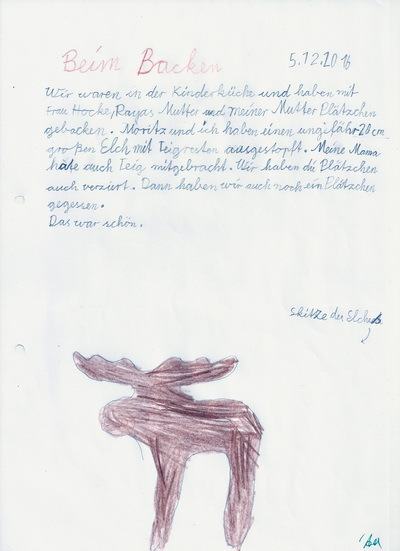 Beim Backen 5.12.2016
Wir waren in der Kinderküche und haben mit
Frau Hocke, Rayas Mutter und meiner Mutter Plätzchen
gebacken. Moritz und ich haben einen ungefähr 20 cm
großen Elch mit Teigresten ausgestopft. Meine Mama
hate auch Teig mitgebracht. Wir haben die Plätzchen
auch verziert. Dann haben wir auch noch ein Plätzchen
gegessen.
Das war schön.
Skitze des Elches